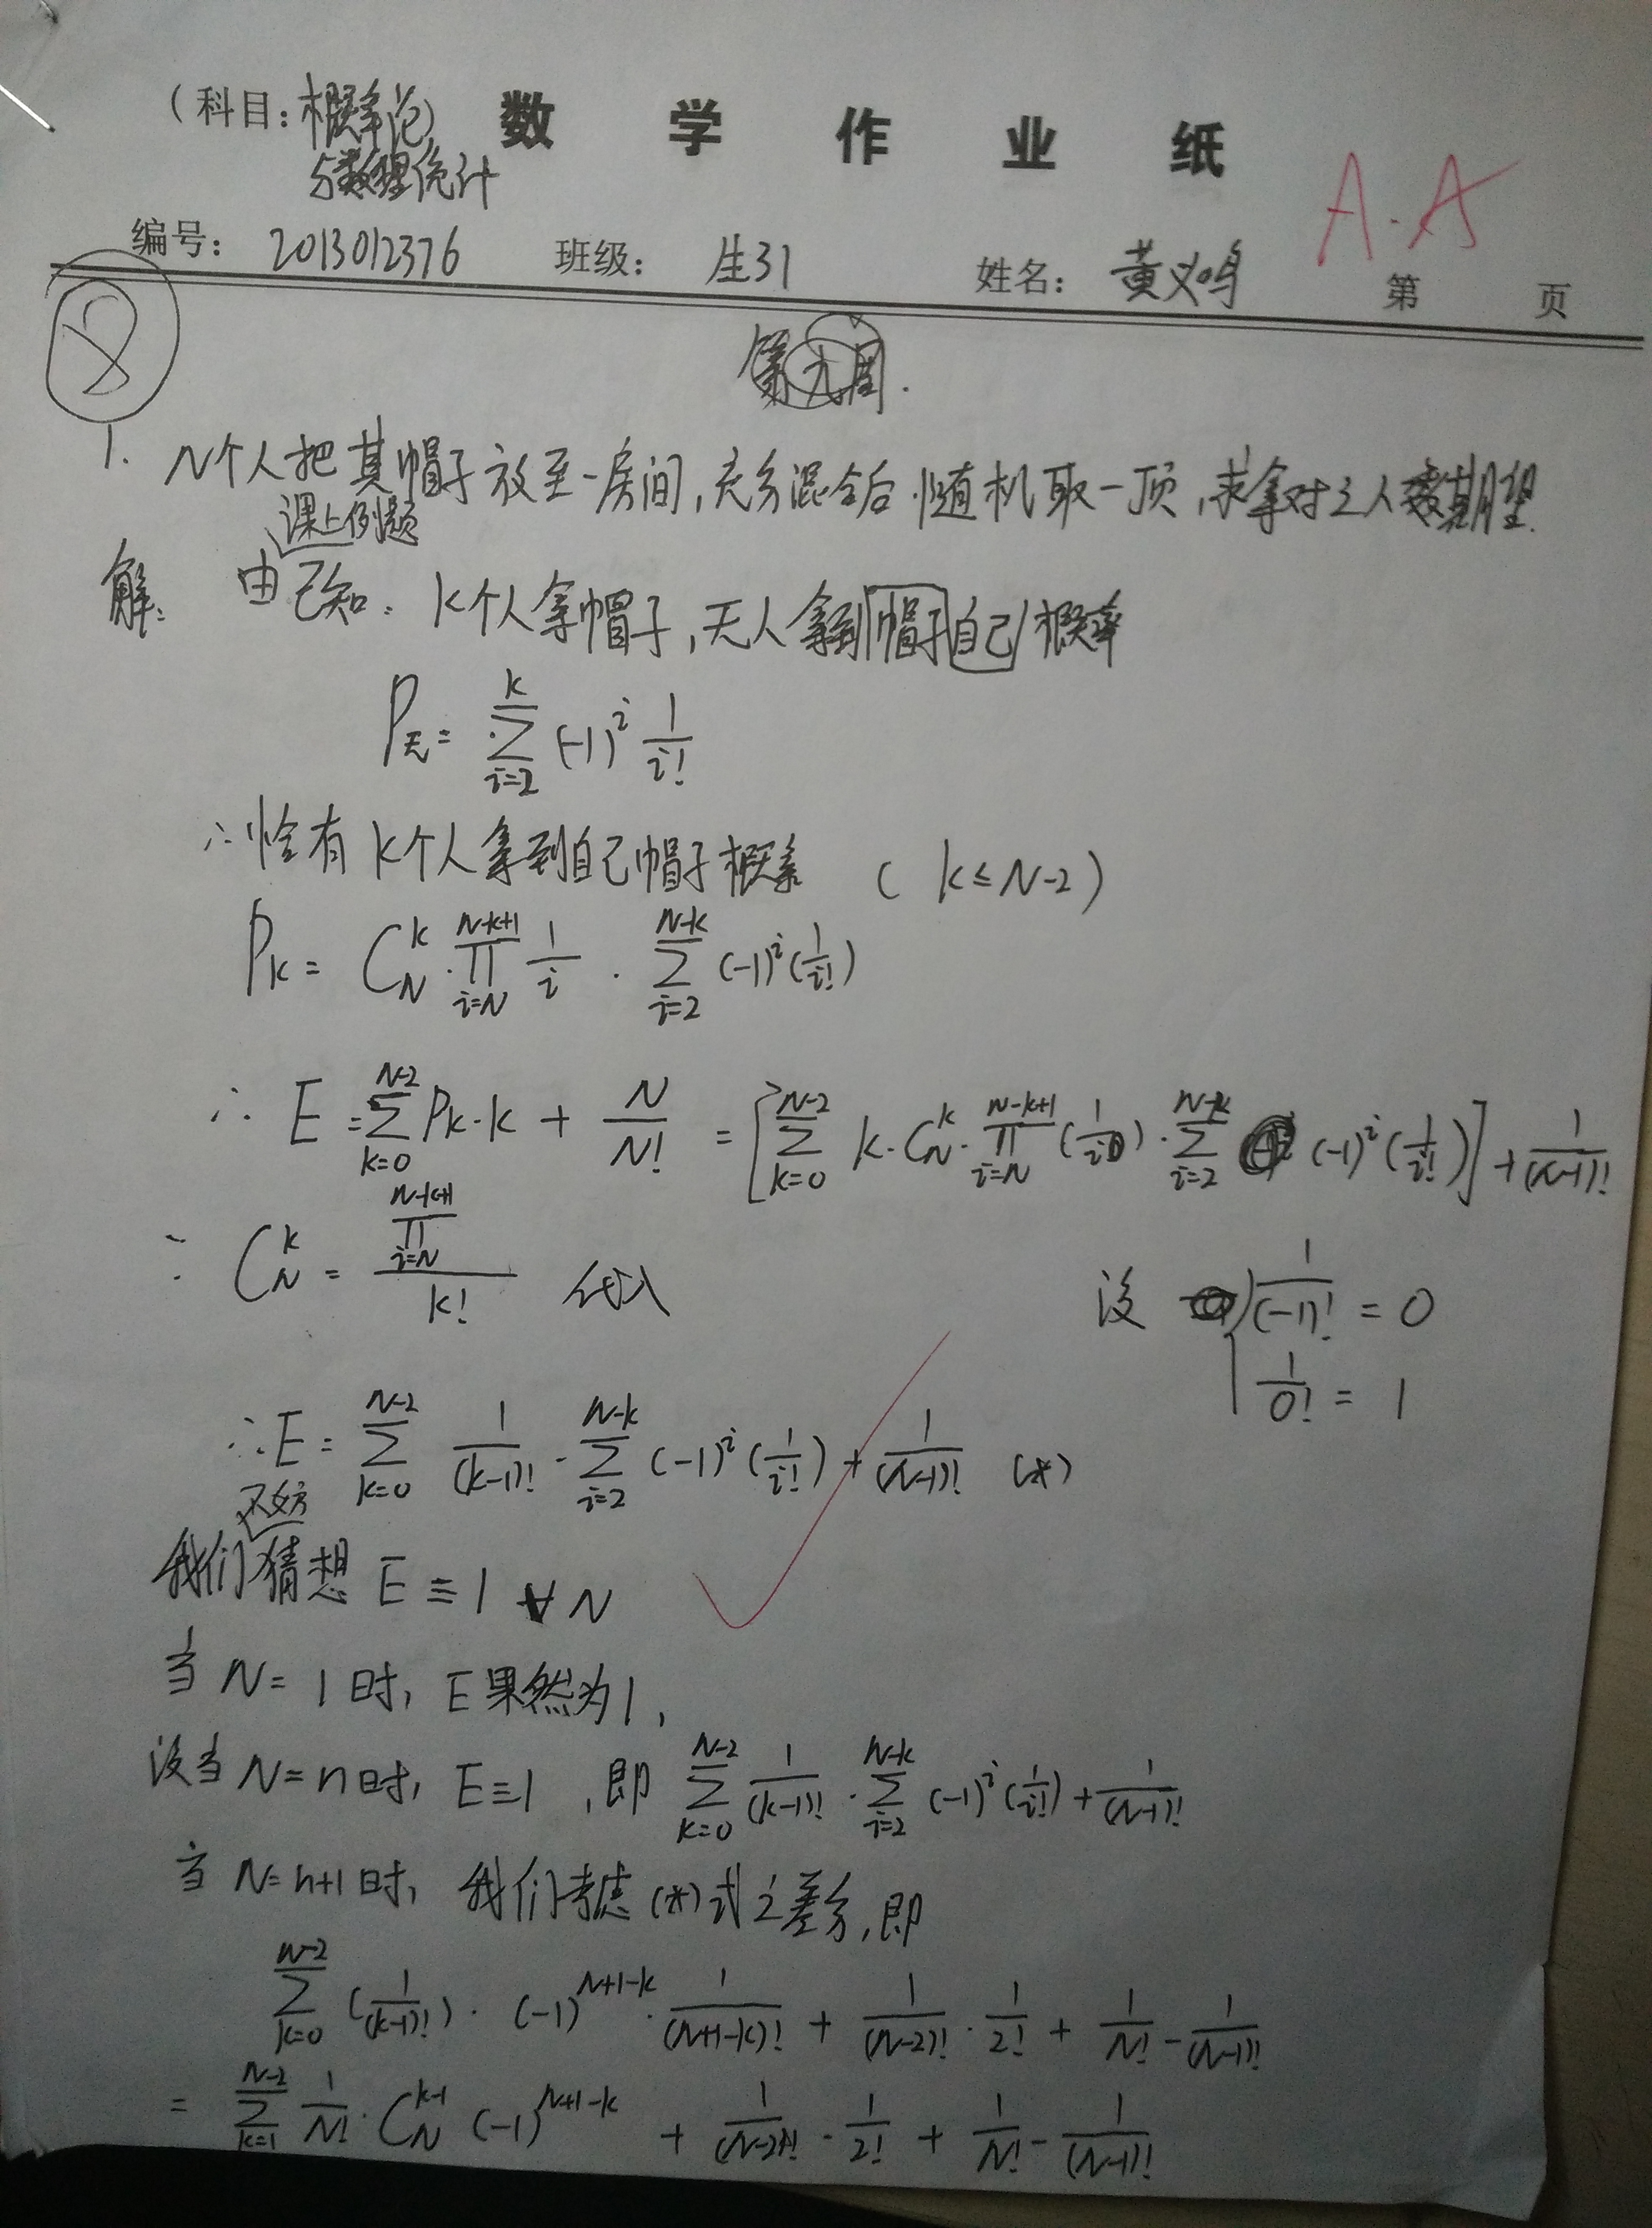 (科目:概率论 数 学 作 业 纸
与数理统计
A.A
编号: 2013012376 班级: 生31 姓名: 黄义鸣 第 页
8
第九周.
1. N个人把其帽子放至一房间,充分混合后随机取一顶,求拿对之人数期望.
课上例题
解: 由已知: k个人拿帽子,无人拿到帽子自己概率
P无 = ∑_{i=2}^{k} (-1)^i 1/i!
∴恰有k个人拿到自己帽子概率 ( k≤N-2 )
P_k = C_N^k · ∏_{i=N}^{N-k+1} 1/i · ∑_{i=2}^{N-k} (-1)^i (1/i!)
∴ E = ∑_{k=0}^{N-2} P_k·k + N/N! = [∑_{k=0}^{N-2} k·C_N^k·∏_{i=N}^{N-k+1} (1/i)·∑_{i=2}^{N-k} (-1)^i (1/i!)] + 1/(N-1)!
∵ C_N^k = ∏_{i=N}^{N-k+1} / k! 代入
设 { 1/(-1)! = 0
1/0! = 1
∴E = ∑_{k=0}^{N-2} 1/(k-1)! · ∑_{i=2}^{N-k} (-1)^i (1/i!) + 1/(N-1)! (*)
不妨
我们猜想 E ≡ 1 ∀ N
当 N = 1 时, E果然为1,
设当 N = n 时, E≡1 ,即 ∑_{k=0}^{N-2} 1/(k-1)! · ∑_{i=2}^{N-k} (-1)^i (1/i!) + 1/(N-1)!
当 N=n+1 时, 我们考虑(*)式之差分,即
∑_{k=0}^{N-2} (1/(k-1)!) · (-1)^{N+1-k} · 1/(N+1-k)! + 1/(N-2)! · 1/2! + 1/N! - 1/(N-1)!
= ∑_{k=1}^{N-2} 1/N! · C_N^{k-1} (-1)^{N+1-k} + 1/(N-2)! · 1/2! + 1/N! - 1/(N-1)!